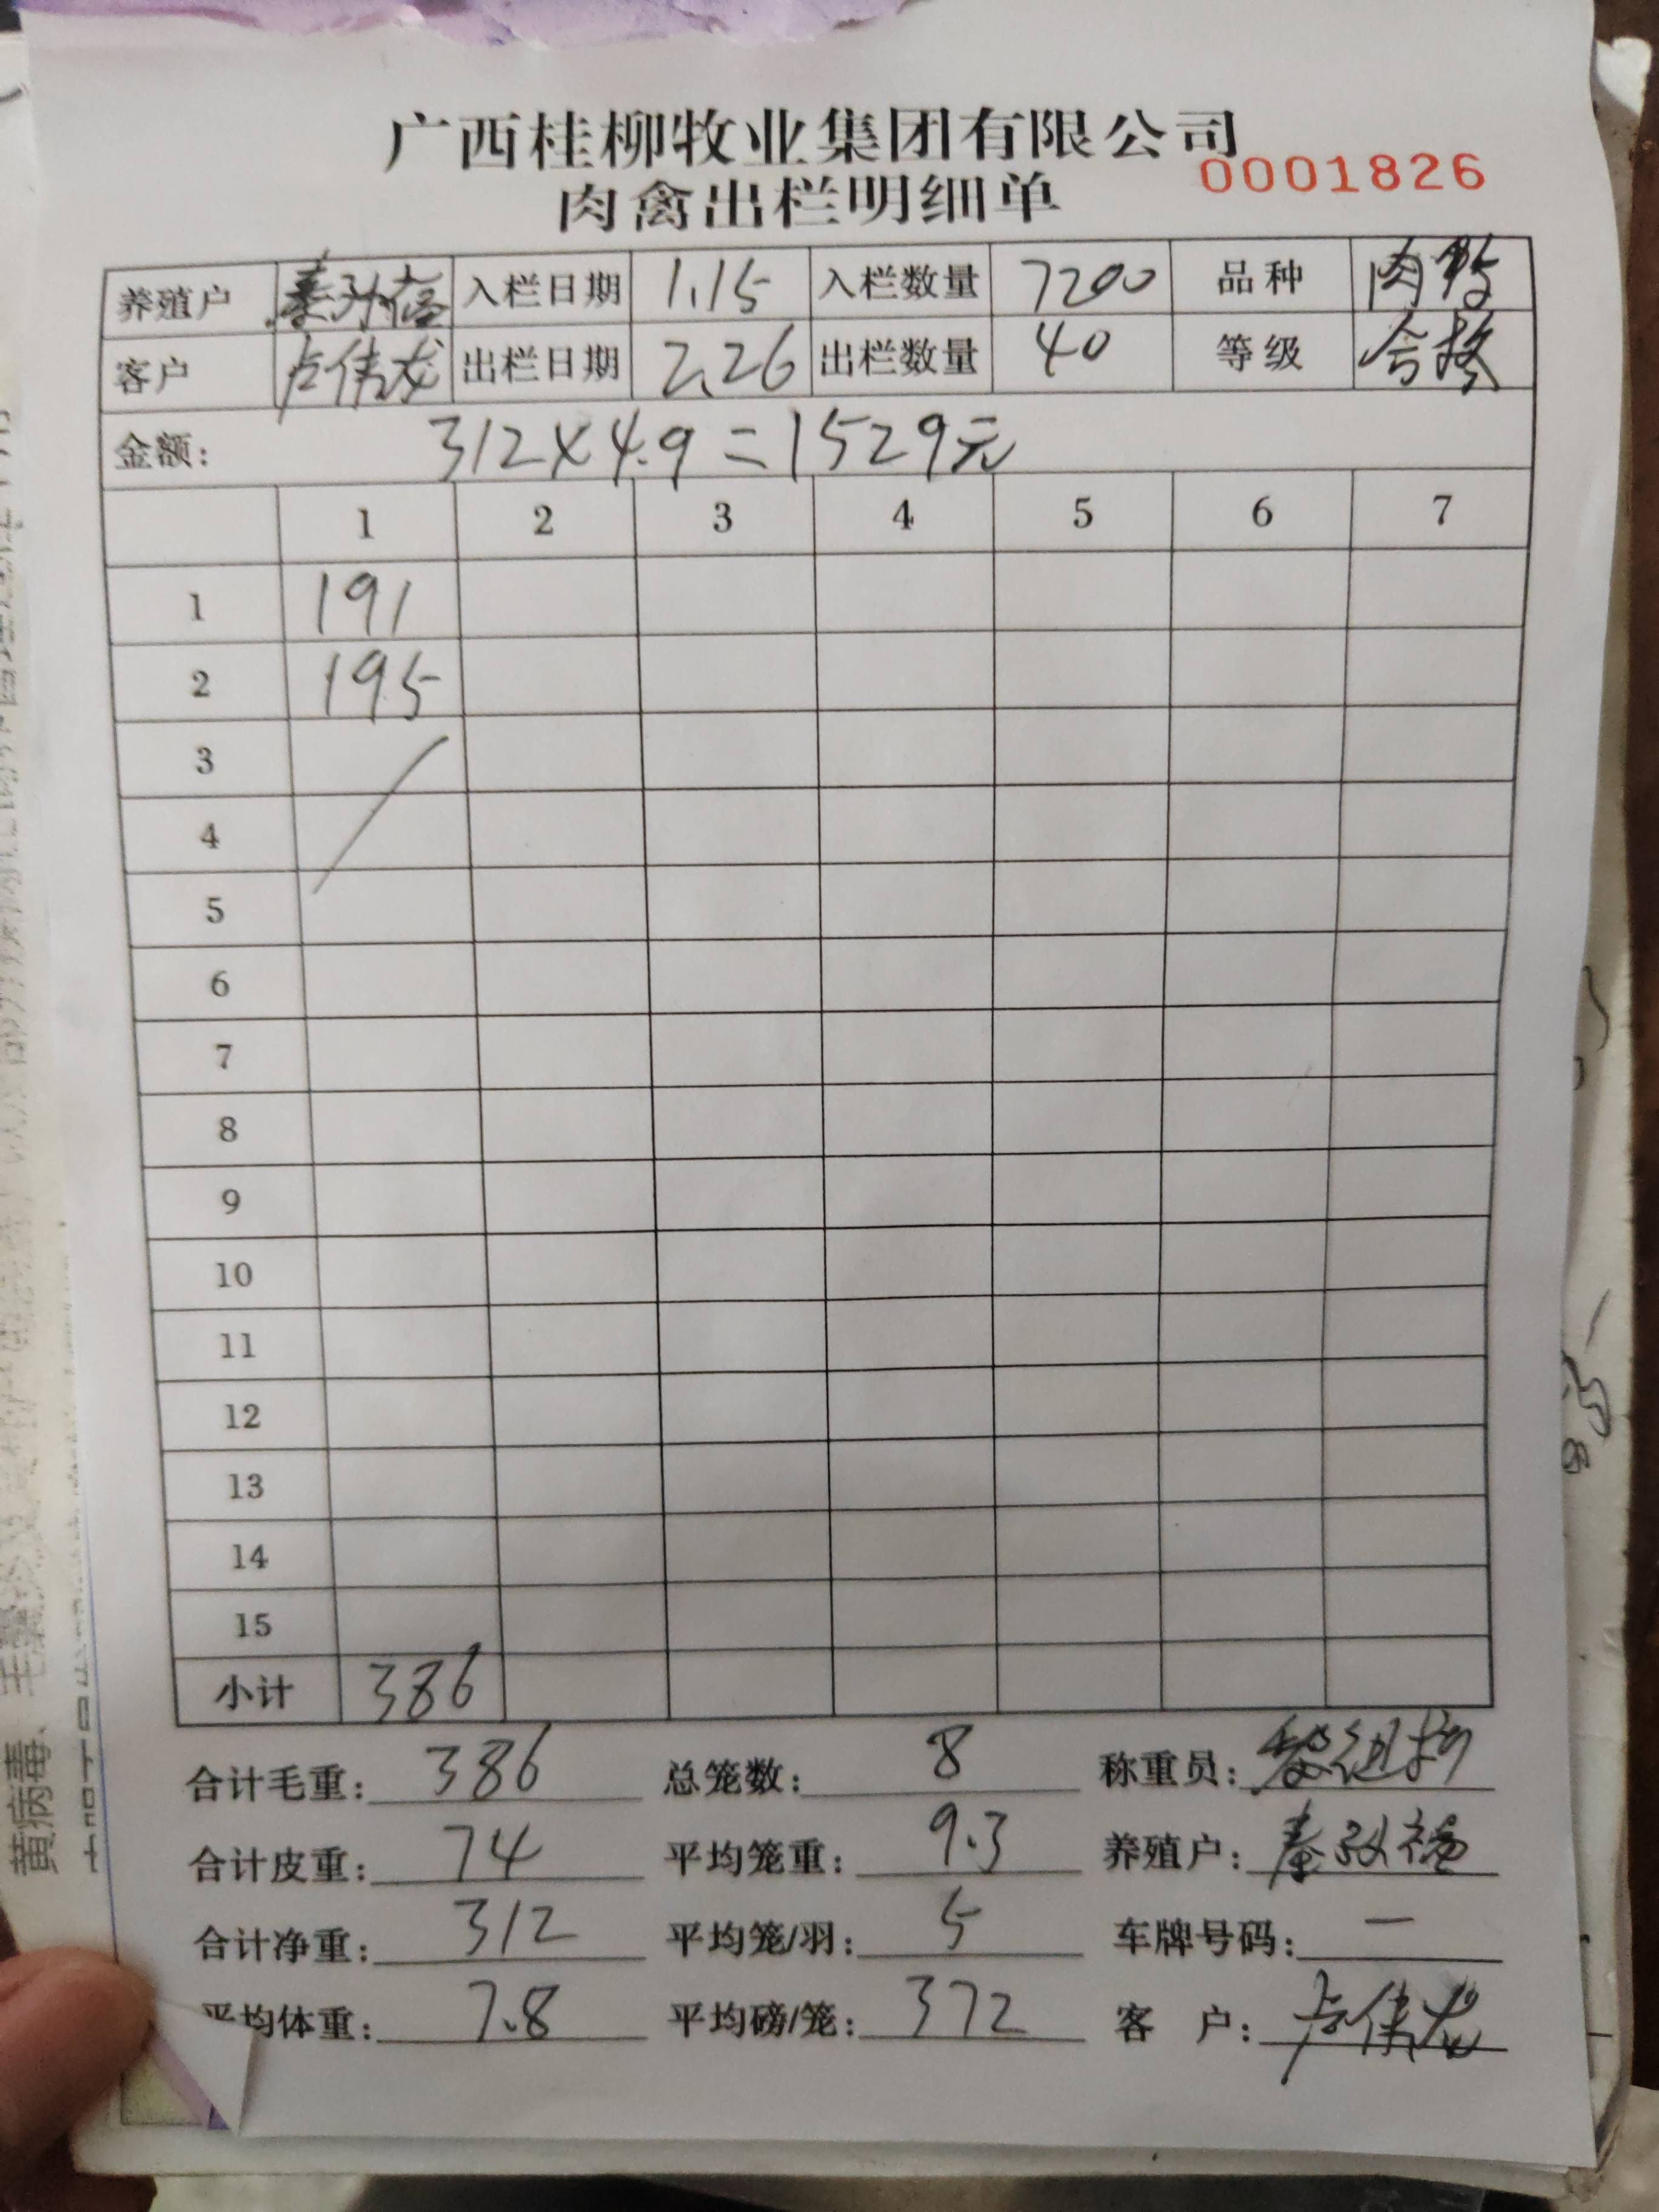 广西桂柳牧业集团有限公司
0001826
肉禽出栏明细单
养殖户 入栏日期 1.15 入栏数量 7200 品种 肉鸭
客户 卢伟龙 出栏日期 2.26 出栏数量 40 等级 合格
金额: 312×4.9=1529元
1 2 3 4 5 6 7
1 191
2 195
3
4
5
6
7
8
9
10
11
12
13
14
15
小计 386
合计毛重: 386 总笼数: 8 称重员:
合计皮重: 74 平均笼重: 9.3 养殖户:
合计净重: 312 平均笼/羽: 5 车牌号码: 一
平均体重: 7.8 平均磅/笼: 372 客 户: 卢伟龙
黄病毒、